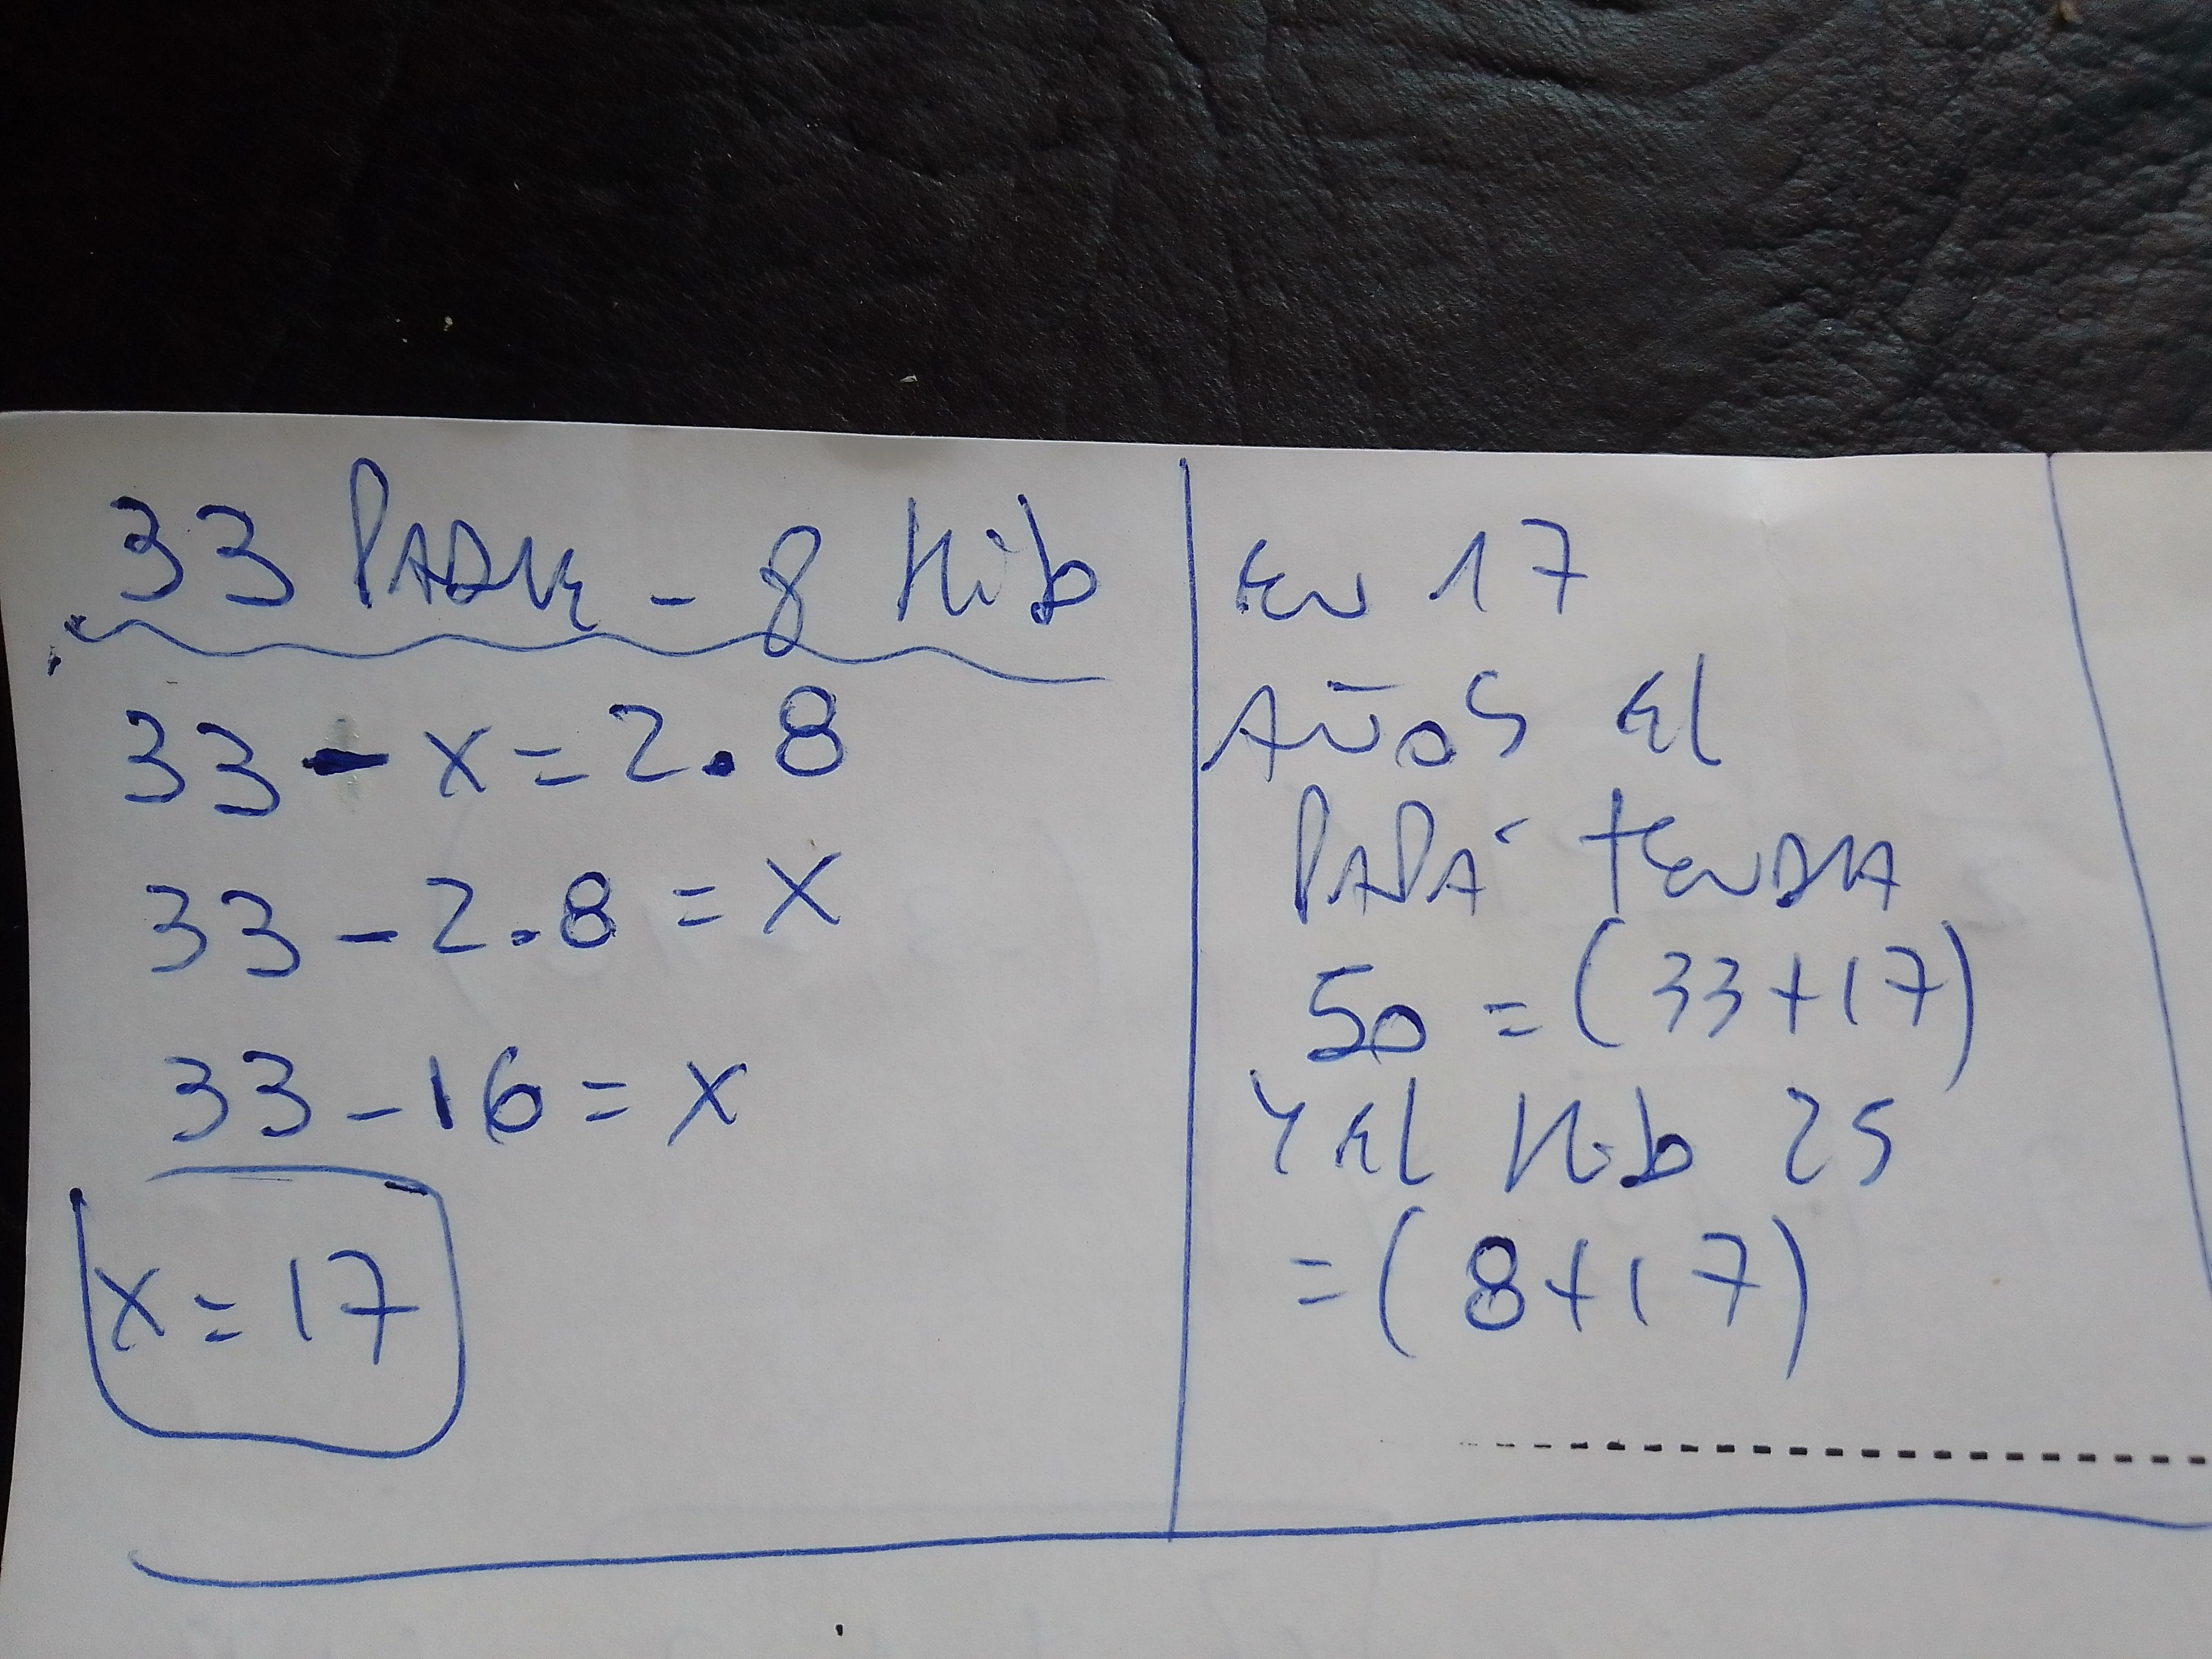 33 PADRE - 8 Hijo
33 - x = 2.8
33 - 2.8 = x
33 - 16 = x
x = 17
EN 17
AÑOS El
PAPÁ tENDRA
50 = (33+17)
Y El Hijo 25
= (8+17)